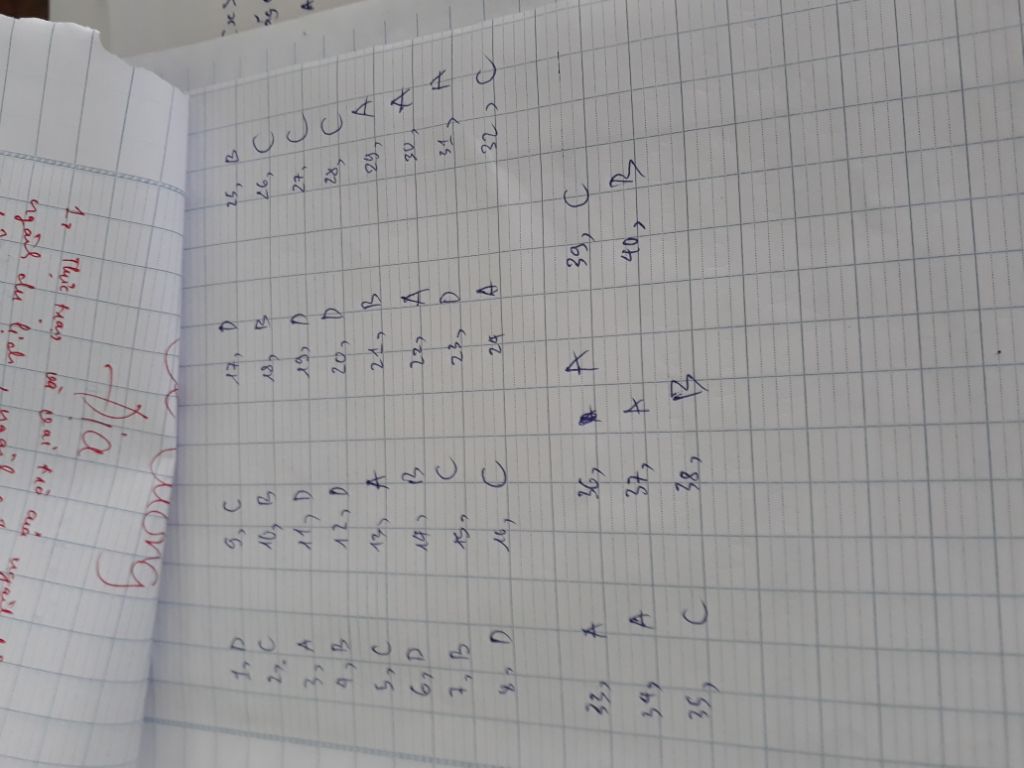 1, D
2, C
3, A
4, B
5, C
6, D
7, B
8, D
9, C
10, B
11, D
12, D
13, A
14, B
15, C
16, C
17, D
18, B
19, D
20, D
21, B
22, A
23, D
24 A
25, B
26, C
27, C
28, C
29, A
30, A
31, A
32, C
33, A
34, A
35, C
36, A
37, A
38, B
39, C
40, B
Địa
1,
và
của